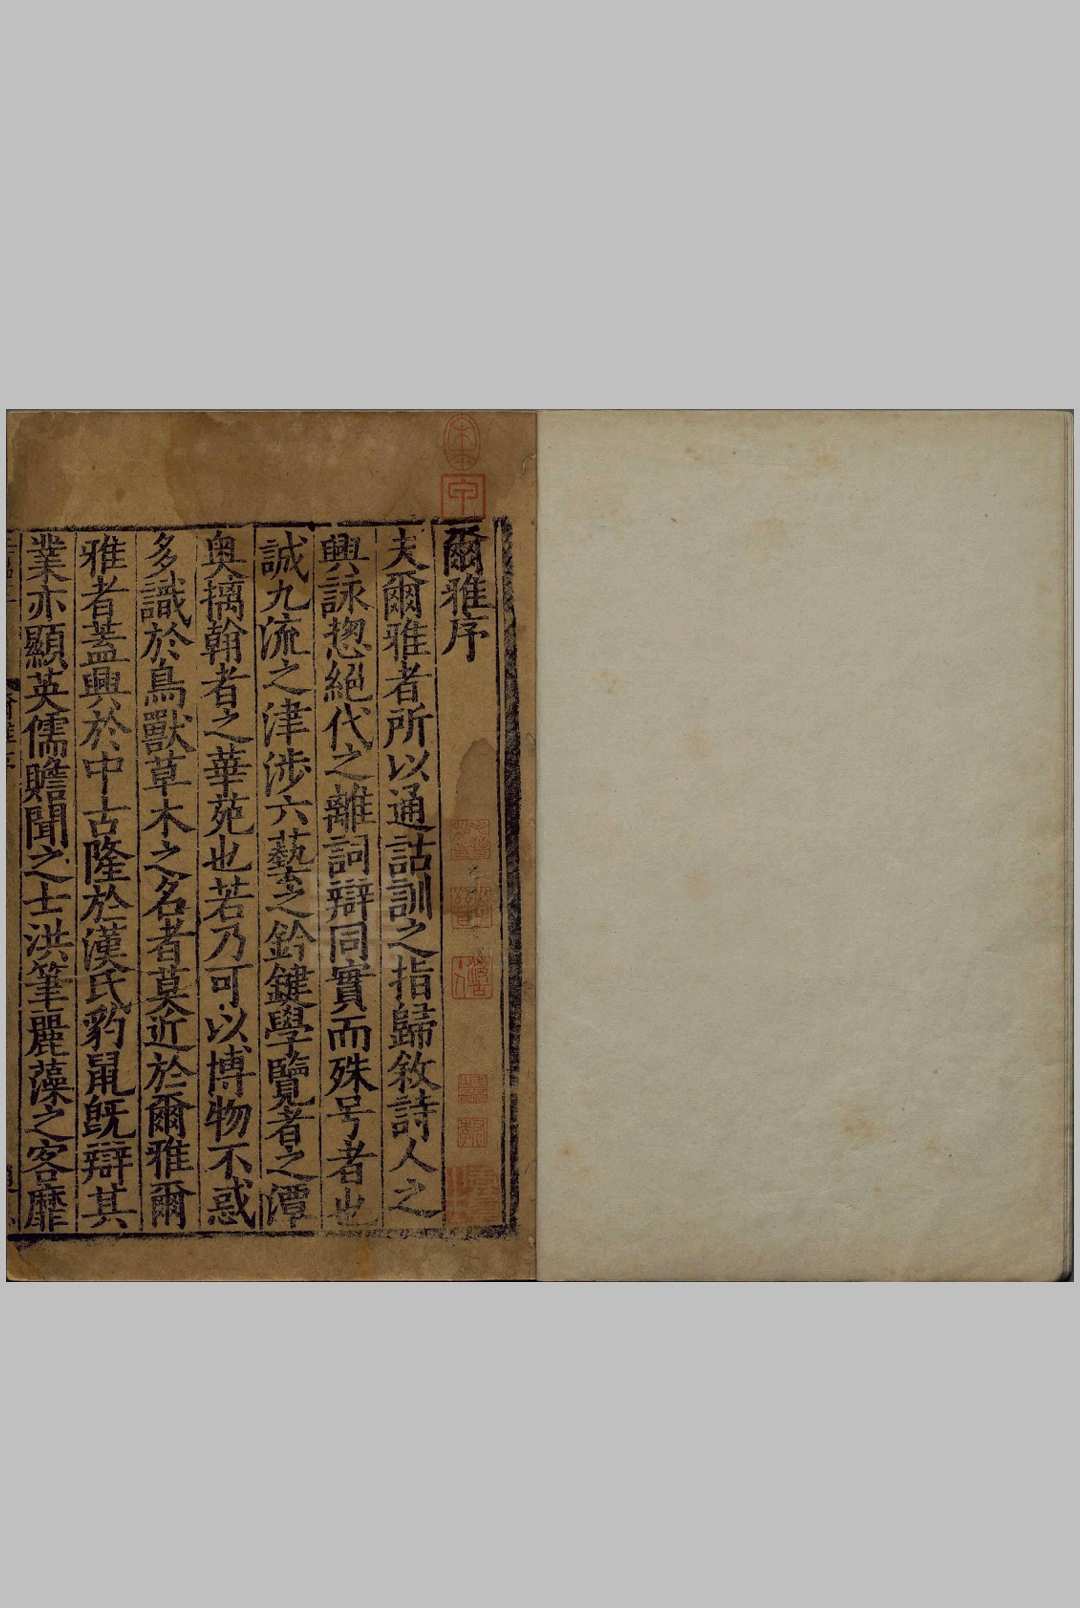 爾雅序
夫爾雅者所以通詁訓之指歸敘詩人之
興詠揔絕代之離詞辯同實而殊号者也
誠九流之津涉六藝之鈐鍵學覽者之潭
奧摛翰者之華苑也若乃可以博物不惑
多識於鳥獸草木之名者莫近於爾雅爾
雅者蓋興於中古隆於漢氏豹鼠旣辯其
業亦顯英儒贍聞之士洪筆麗藻之客靡